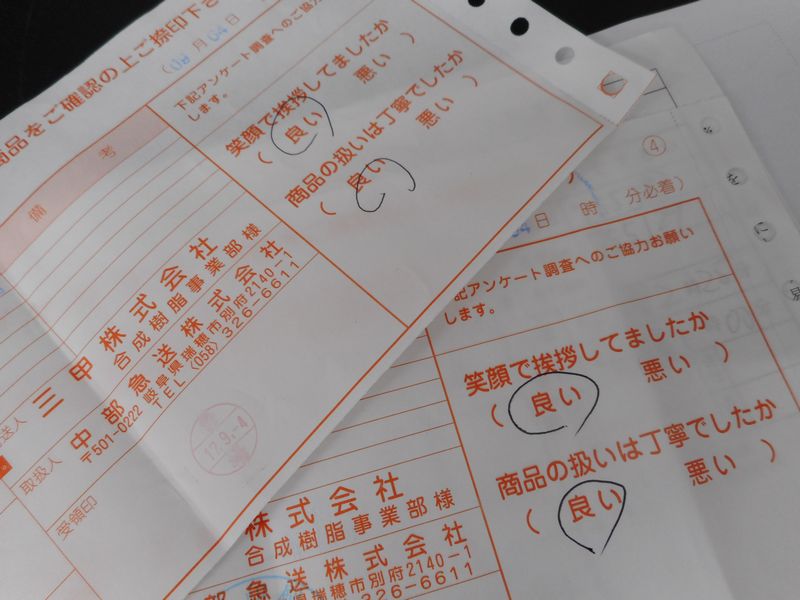 商品をご確認の上ご捺印下さ
月04日
備 考
下記アンケート調査へのご協力
します。
笑顔で挨拶してましたか
( 良い 悪い )
商品の扱いは丁寧でしたか
( 良い 悪い )
送人 三甲株式会社
合成樹脂事業部様
取扱人 中部急送株式会社
〒501-0222 岐阜県瑞穂市別府2140-1
TEL (058) 326-6611
受領印
17.9.-4
④
日 時 分必着)
記アンケート調査へのご協力お願い
します。
笑顔で挨拶してましたか
( 良い 悪い )
商品の扱いは丁寧でしたか
( 良い 悪い )
株式会社
合成樹脂事業部様
部急送株式会社
県瑞穂市別府2140-1
326-6611
を
に